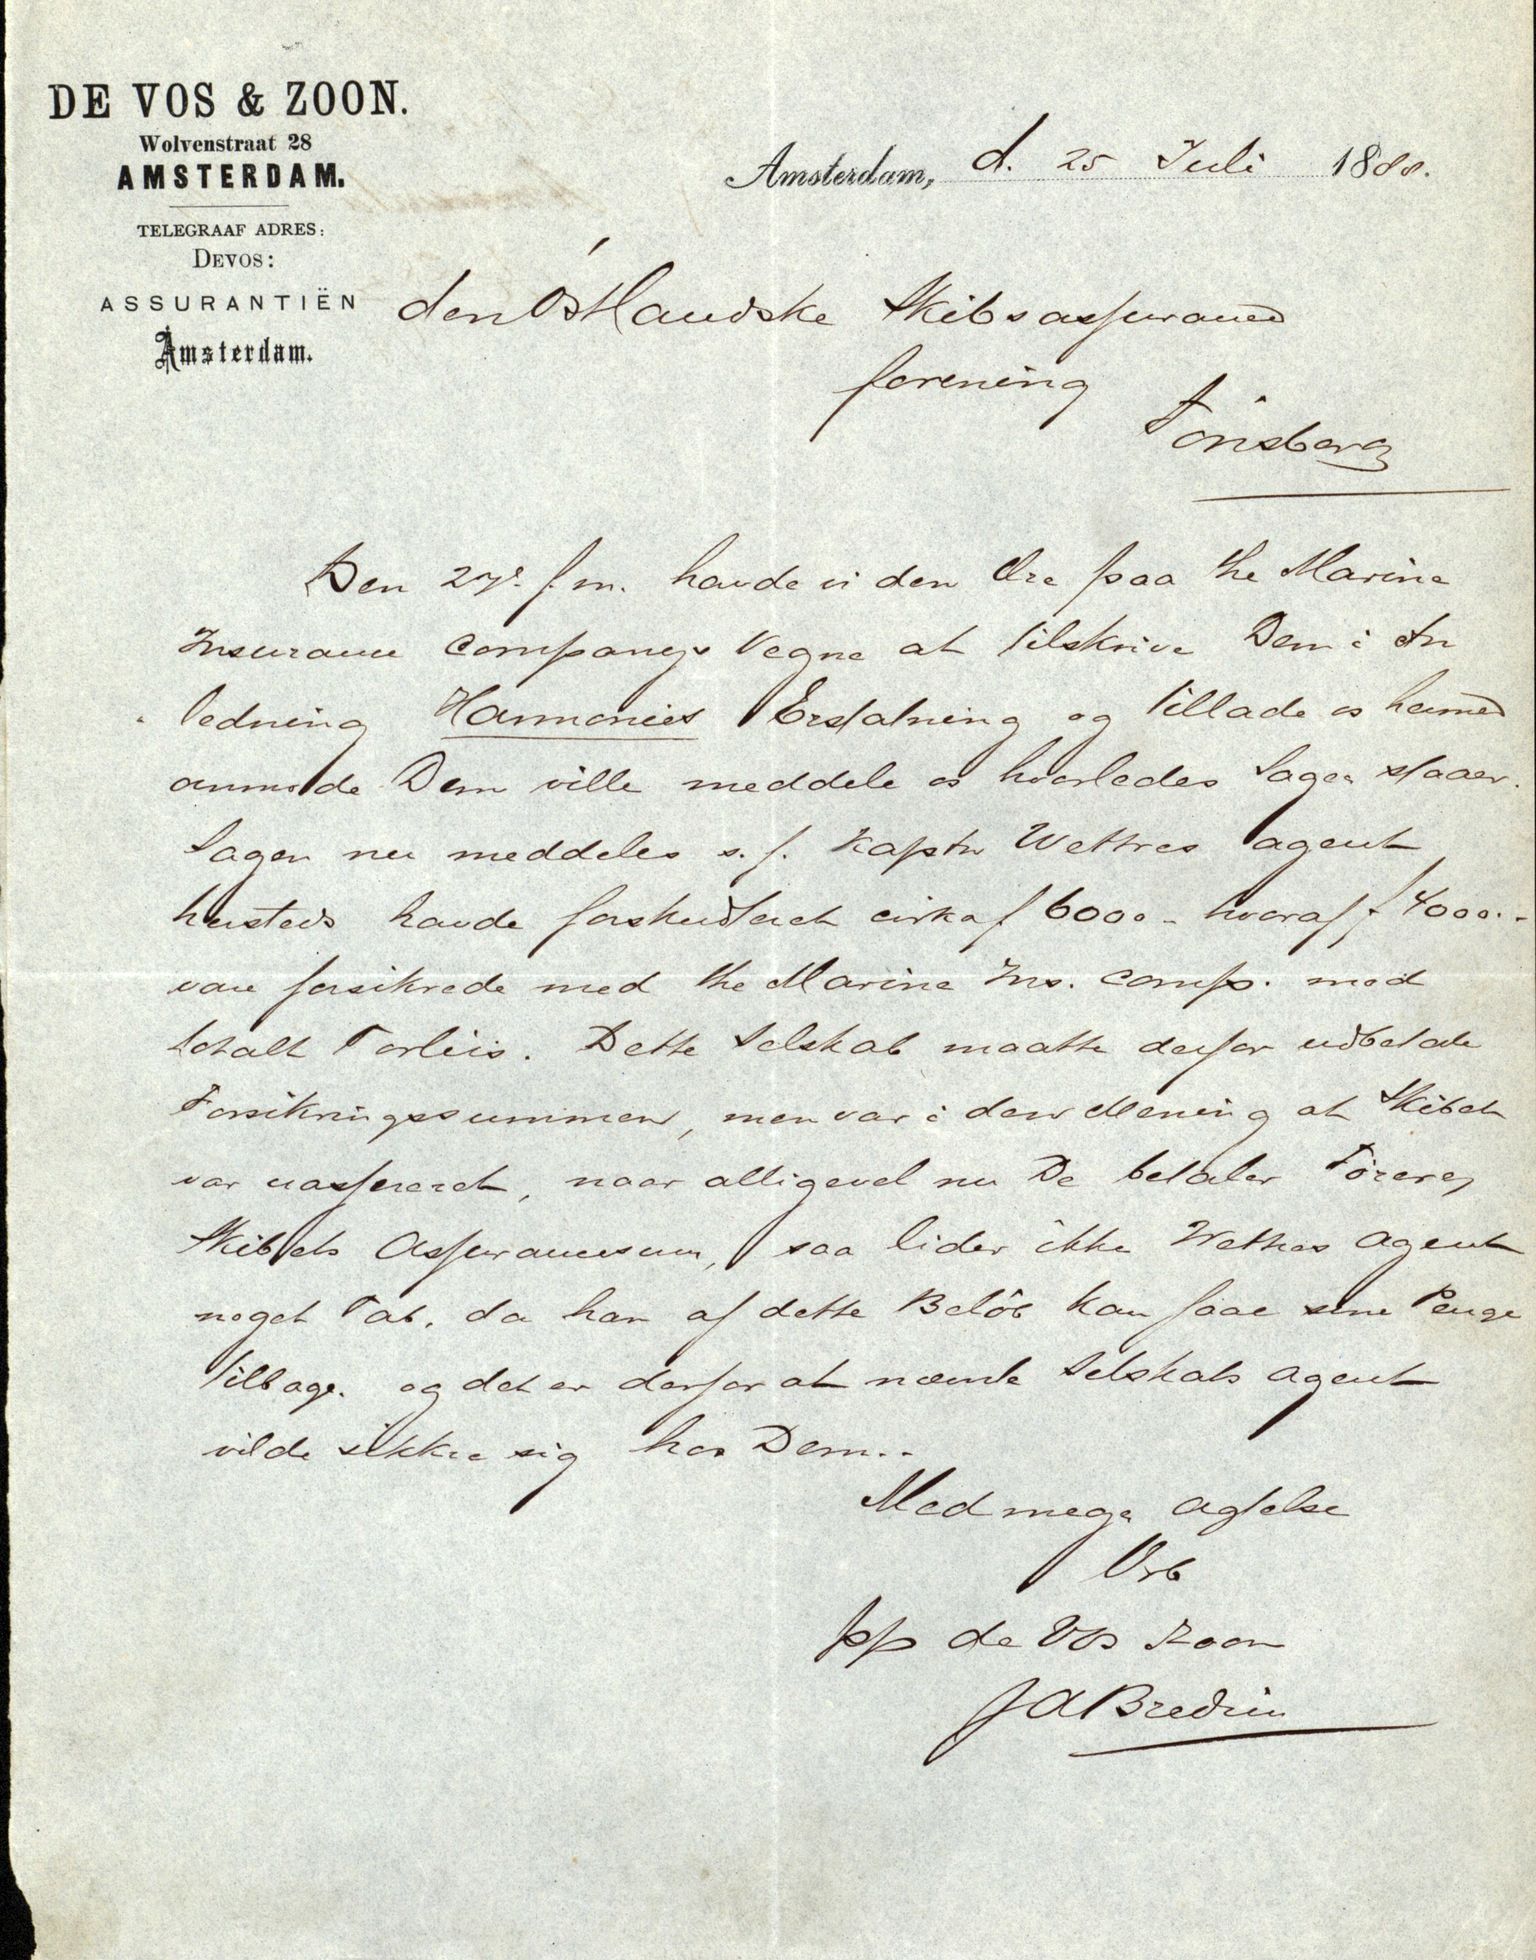 DE VOS & ZOON.
Wolvenstraat 28
AMSTERDAM.
TELEGRAAF ADRES:
DEVOS:
ASSURANTIËN
Amsterdam.
Amsterdam, d. 25 Juli 1888.
den Östlandske Skibsassurance
forening
Tönsberg
Den 27de f. m. havde vi den Ære paa the Marine
Insurance Companys Vegne at tilskrive Dem i An
ledning Harmonies Erstatning og tillade os hermed
anmode Dem ville meddele os hvorledes Sagen staaer.
Sagen nu meddeles s. f. Kaptn Wettres agent
hersteds havde forskudteret cirka f 6000.- hvoraf f 4000.-
vare forsikrede med the Marine Ins. Comp. mod
totalt Forliis. Dette Selskab maatte derfor udbetale
Forsikringssummen, men var i den Mening at Skibet
var uassureret, naar alligevel nu De betaler
Skibets Assurancesum, saa lider ikke Wettres Agent
noget Tab, da han af dette Belöb kan faae sine Penge
tilbage. og det er derfor at nævnte Selskabs Agent
vilde sikkre sig hos Dem..
Med megen Agtelse
Drb
pp de Vos Zoon